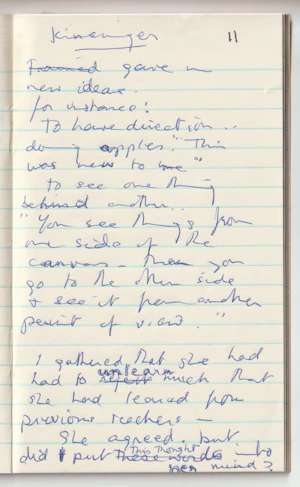 Kinsinger 11
Framed gave me
new ideas.
for instance:
To have direction..
doing apples. "This
was new to me"
to see one thing
behind another..
"You see things from
one side of the
canvas - then you
go to the other side
& see it from another
point of view."
I gathered that she had
had to unlearn reject much that
she had learned from
previous teachers -
She agreed. but
did I put This thought These words into
her mind?